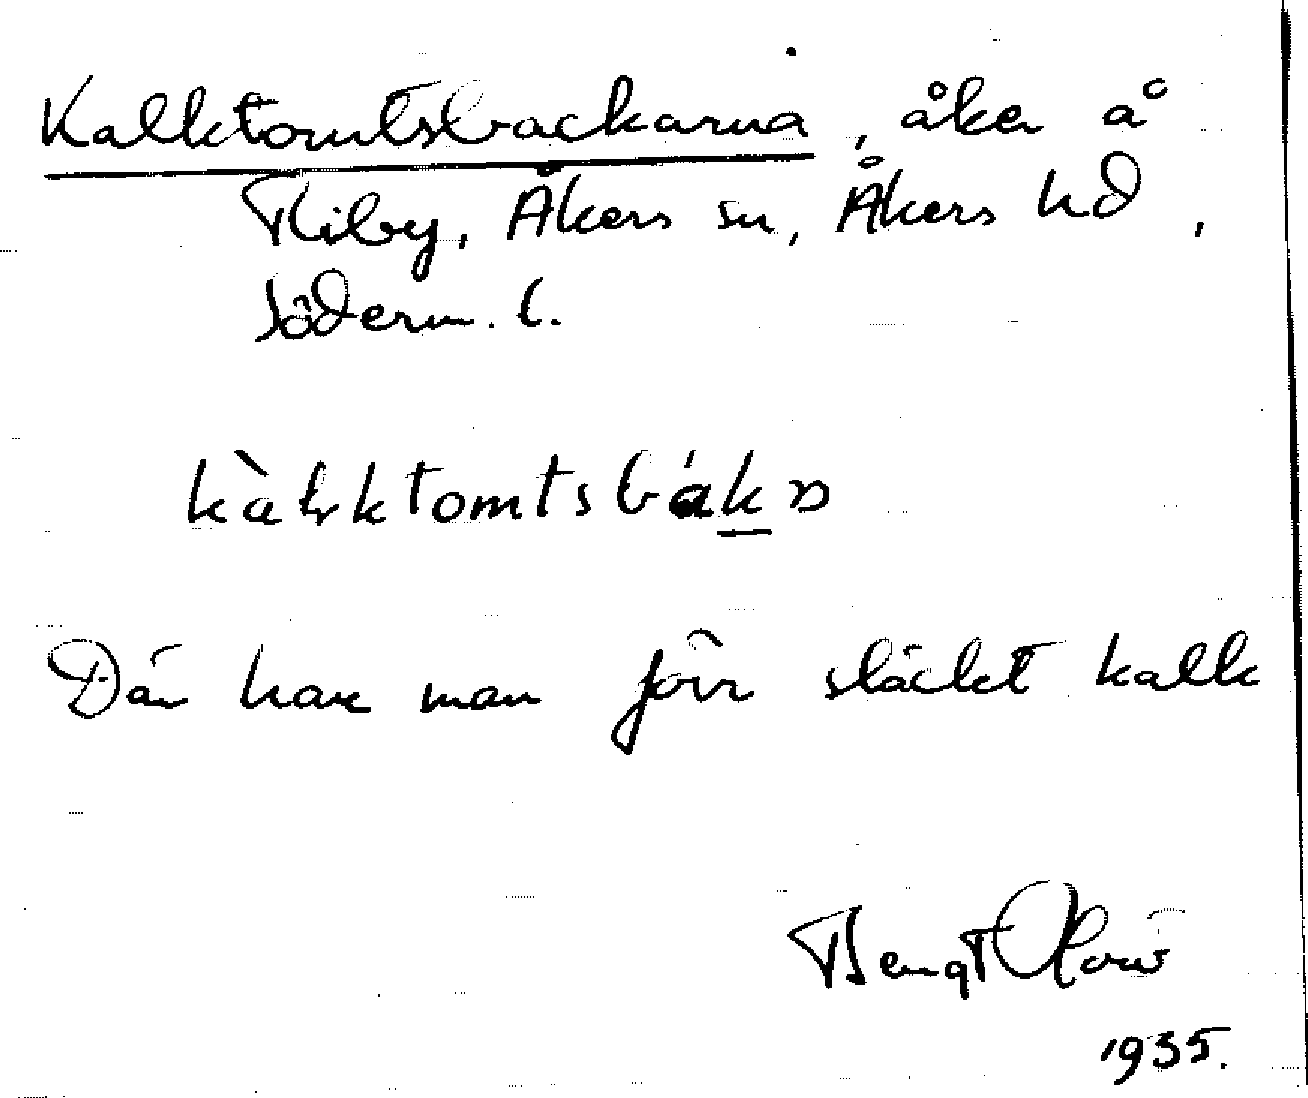 Kalktomtsbackarna, åker å
Riby, Åkers sn, Åkers hd,
Söderm. l.
kàłktomtsbákɷ
Där har man förr släckt kalk
Bengt
1935.